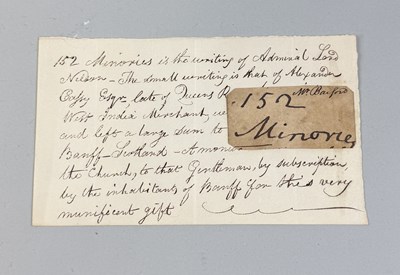 152 Minories is the writing of Admiral Lord
Nelson - The small writing is that of Alexander
Cassy Esqr, late of Queens
West India Merchant,
and left a large Sum to
Banff - Scotland - A
the Church, to that Gentleman, by subscription
by the inhabitants of Banff for this very
munificent gift
Mr
152
Minories